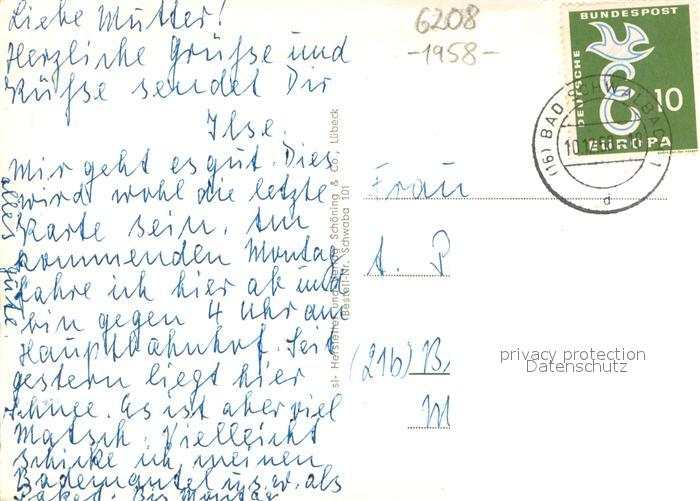 Liebe Mutter!
Herzliche Grüße und
Küße sendet Dir
Ilse.
Mir geht es gut. Dies
wird wohl die letzte
Karte sein. Am
kommenden Montag
fahre ich hier ab und
bin gegen 4 Uhr am
Hauptbahnhof. Seit
gestern liegt hier
Schnee. Es ist aber viel
Matsch. Vielleicht
schicke ich meinen
Bademantel u.s.w. als
Paket. Bis Montag
alles Gute.
sl- Hersteller und Verlag Schöning & Co., Lübeck
Bestell-Nr. Schwaba 101
6208
-1958-
DEUTSCHE BUNDESPOST
10
EUROPA
(16) BAD SCHWALBACH 1
d
Frau
A. P
(21b) B
M
privacy protection
Datenschutz